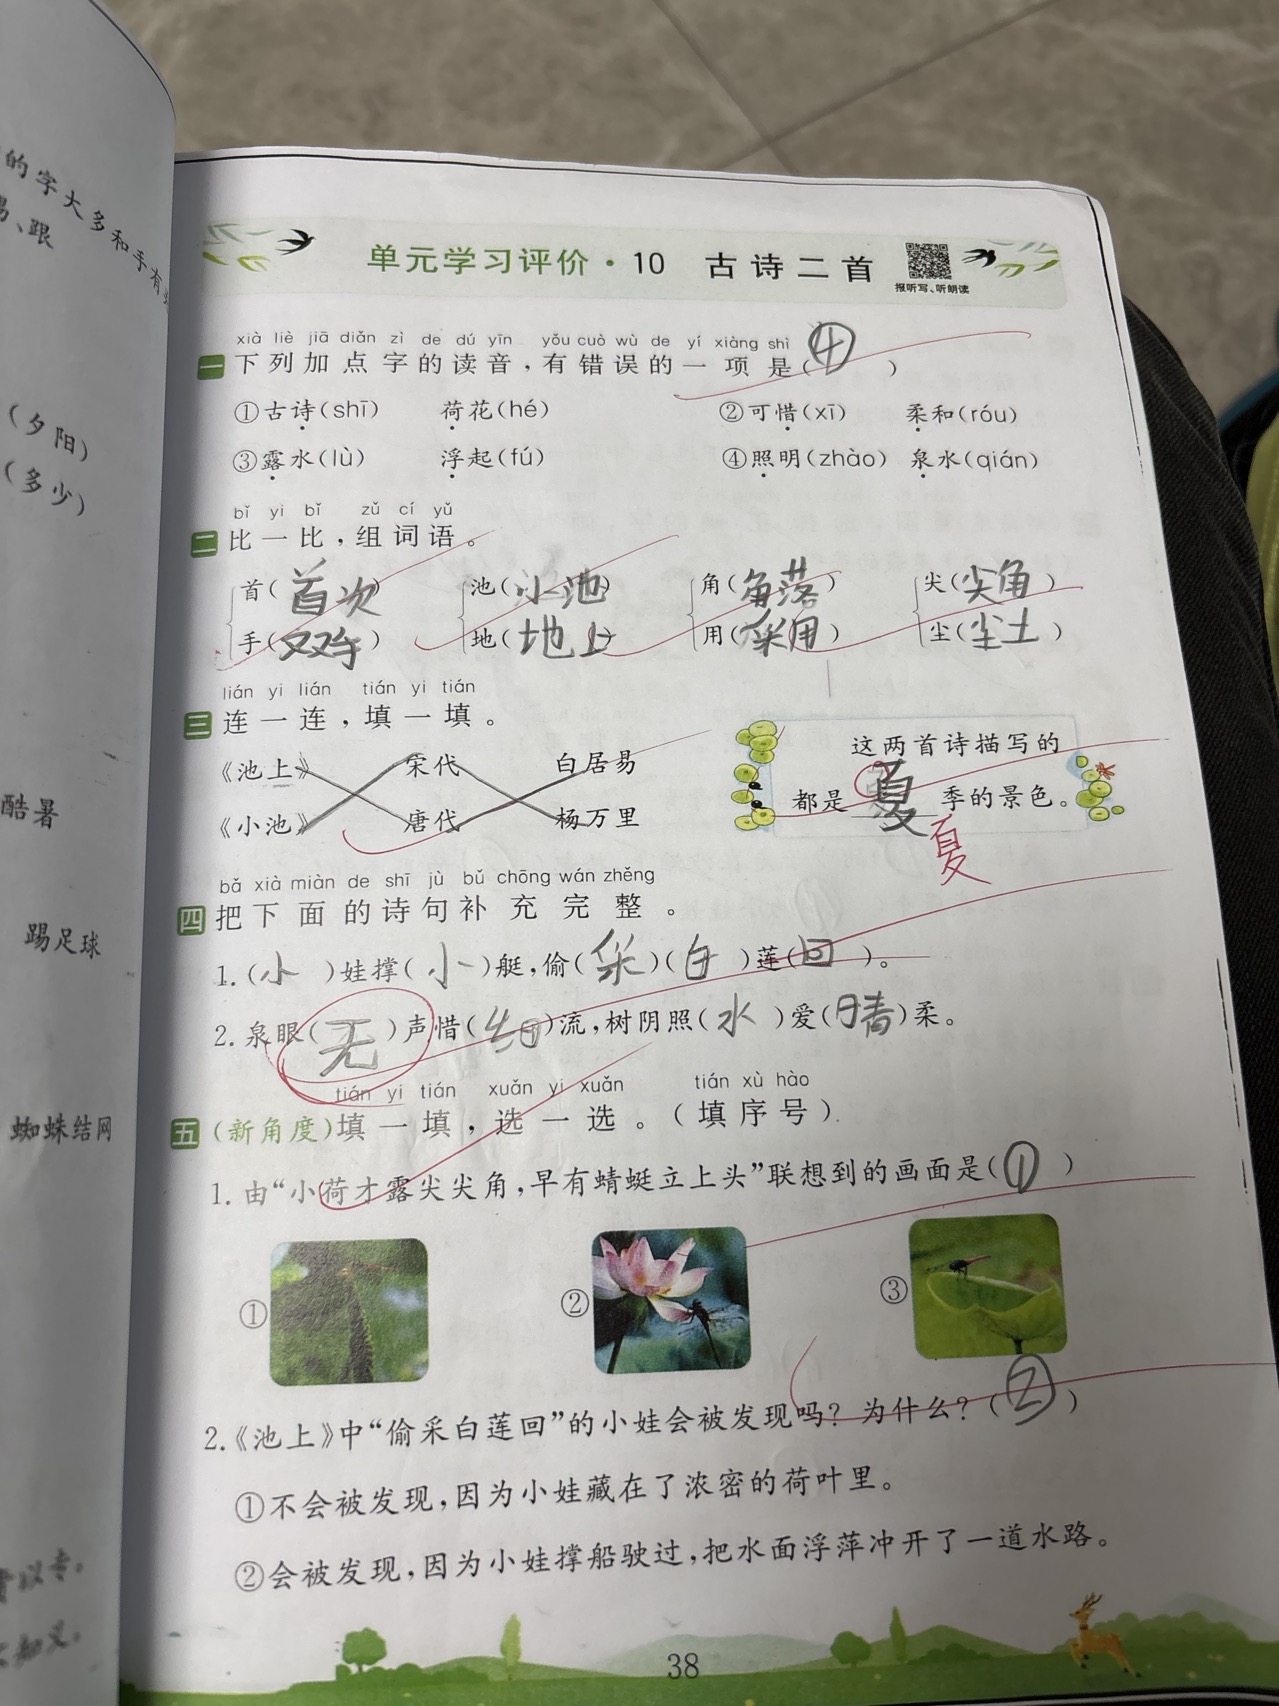 的字大多和手有
、跟
(夕阳)
(多少)
酷暑
踢足球
蜘蛛结网
单元学习评价·10 古诗二首
报听写、听朗读
xià liè jiā diǎn zì de dú yīn yǒu cuò wù de yí xiàng shì
一 下列加点字的读音,有错误的一项是(④)
①古诗(shī) 荷花(hé) ②可惜(xī) 柔和(róu)
③露水(lù) 浮起(fú) ④照明(zhào) 泉水(qián)
bǐ yi bǐ zǔ cí yǔ
二 比一比,组词语。
首(首次) 池(小池) 角(角落) 尖(尖角)
手(双手) 地(地上) 用(采用) 尘(尘土)
lián yi lián tián yi tián
三 连一连,填一填。
《池上》 宋代 白居易
《小池》 唐代 杨万里
这两首诗描写的
都是夏季的景色。
夏
bǎ xià miàn de shī jù bǔ chōng wán zhěng
四 把下面的诗句补充完整。
1.(小)娃撑(小)艇,偷(采)(白)莲(回)。
2.泉眼(无)声惜(细)流,树阴照(水)爱(晴)柔。
tián yi tián xuǎn yi xuǎn tián xù hào
五 (新角度)填一填,选一选。(填序号)
1.由“小荷才露尖尖角,早有蜻蜓立上头”联想到的画面是(①)
① ② ③
2.《池上》中“偷采白莲回”的小娃会被发现吗?为什么?(②)
①不会被发现,因为小娃藏在了浓密的荷叶里。
②会被发现,因为小娃撑船驶过,把水面浮萍冲开了一道水路。
38